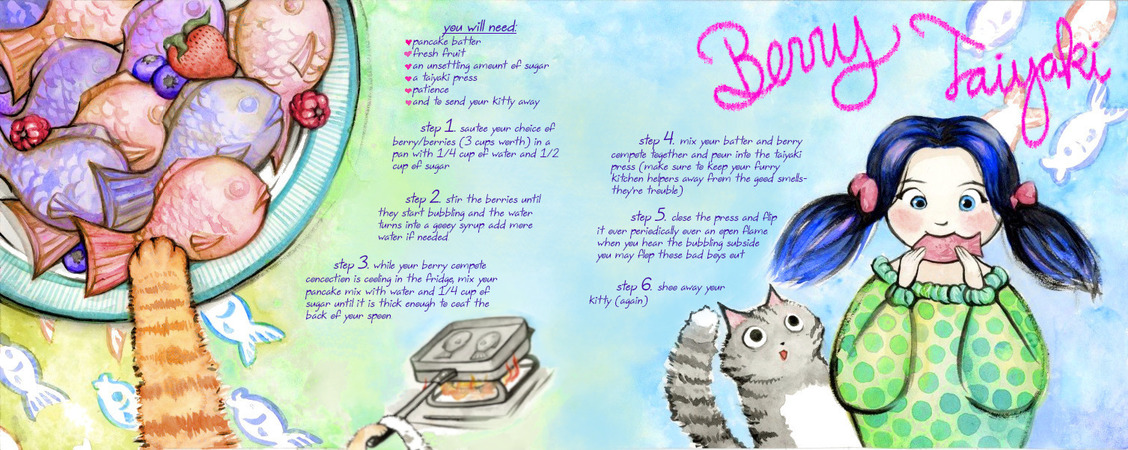 Berry Taiyaki
you will need:
pancake batter
fresh fruit
an unsettling amount of sugar
a taiyaki press
patience
and to send your kitty away
step 1. sautee your choice of
berry/berries (3 cups worth) in a
pan with 1/4 cup of water and 1/2
cup of sugar
step 2. stir the berries until
they start bubbling and the water
turns into a gooey syrup add more
water if needed
step 3. while your berry compote
concoction is cooling in the fridge, mix your
pancake mix with water and 1/4 cup of
sugar until it is thick enough to coat the
back of your spoon
step 4. mix your batter and berry
compote together and pour into the taiyaki
press (make sure to keep your furry
kitchen helpers away from the good smells-
they're trouble)
step 5. close the press and flip
it over periodically over an open flame
when you hear the bubbling subside
you may flop these bad boys out
step 6. shoo away your
kitty (again)